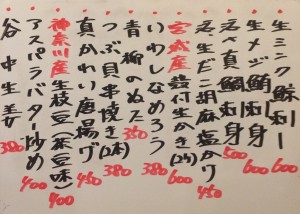 生ミンク鯨刺身
生メジ鮪刺身 600
活真鯛刺身 500
活生だこ胡麻塩かけ 450
宮城産 殻付生かき(2ケ) 600
いわしなめろう 380
青柳のぬた 350
つぶ貝串焼き(2本) 380
真かれい唐揚げ 450
神奈川産 生枝豆(茶豆味) 400
アスパラバター炒め 400
谷中生姜 380